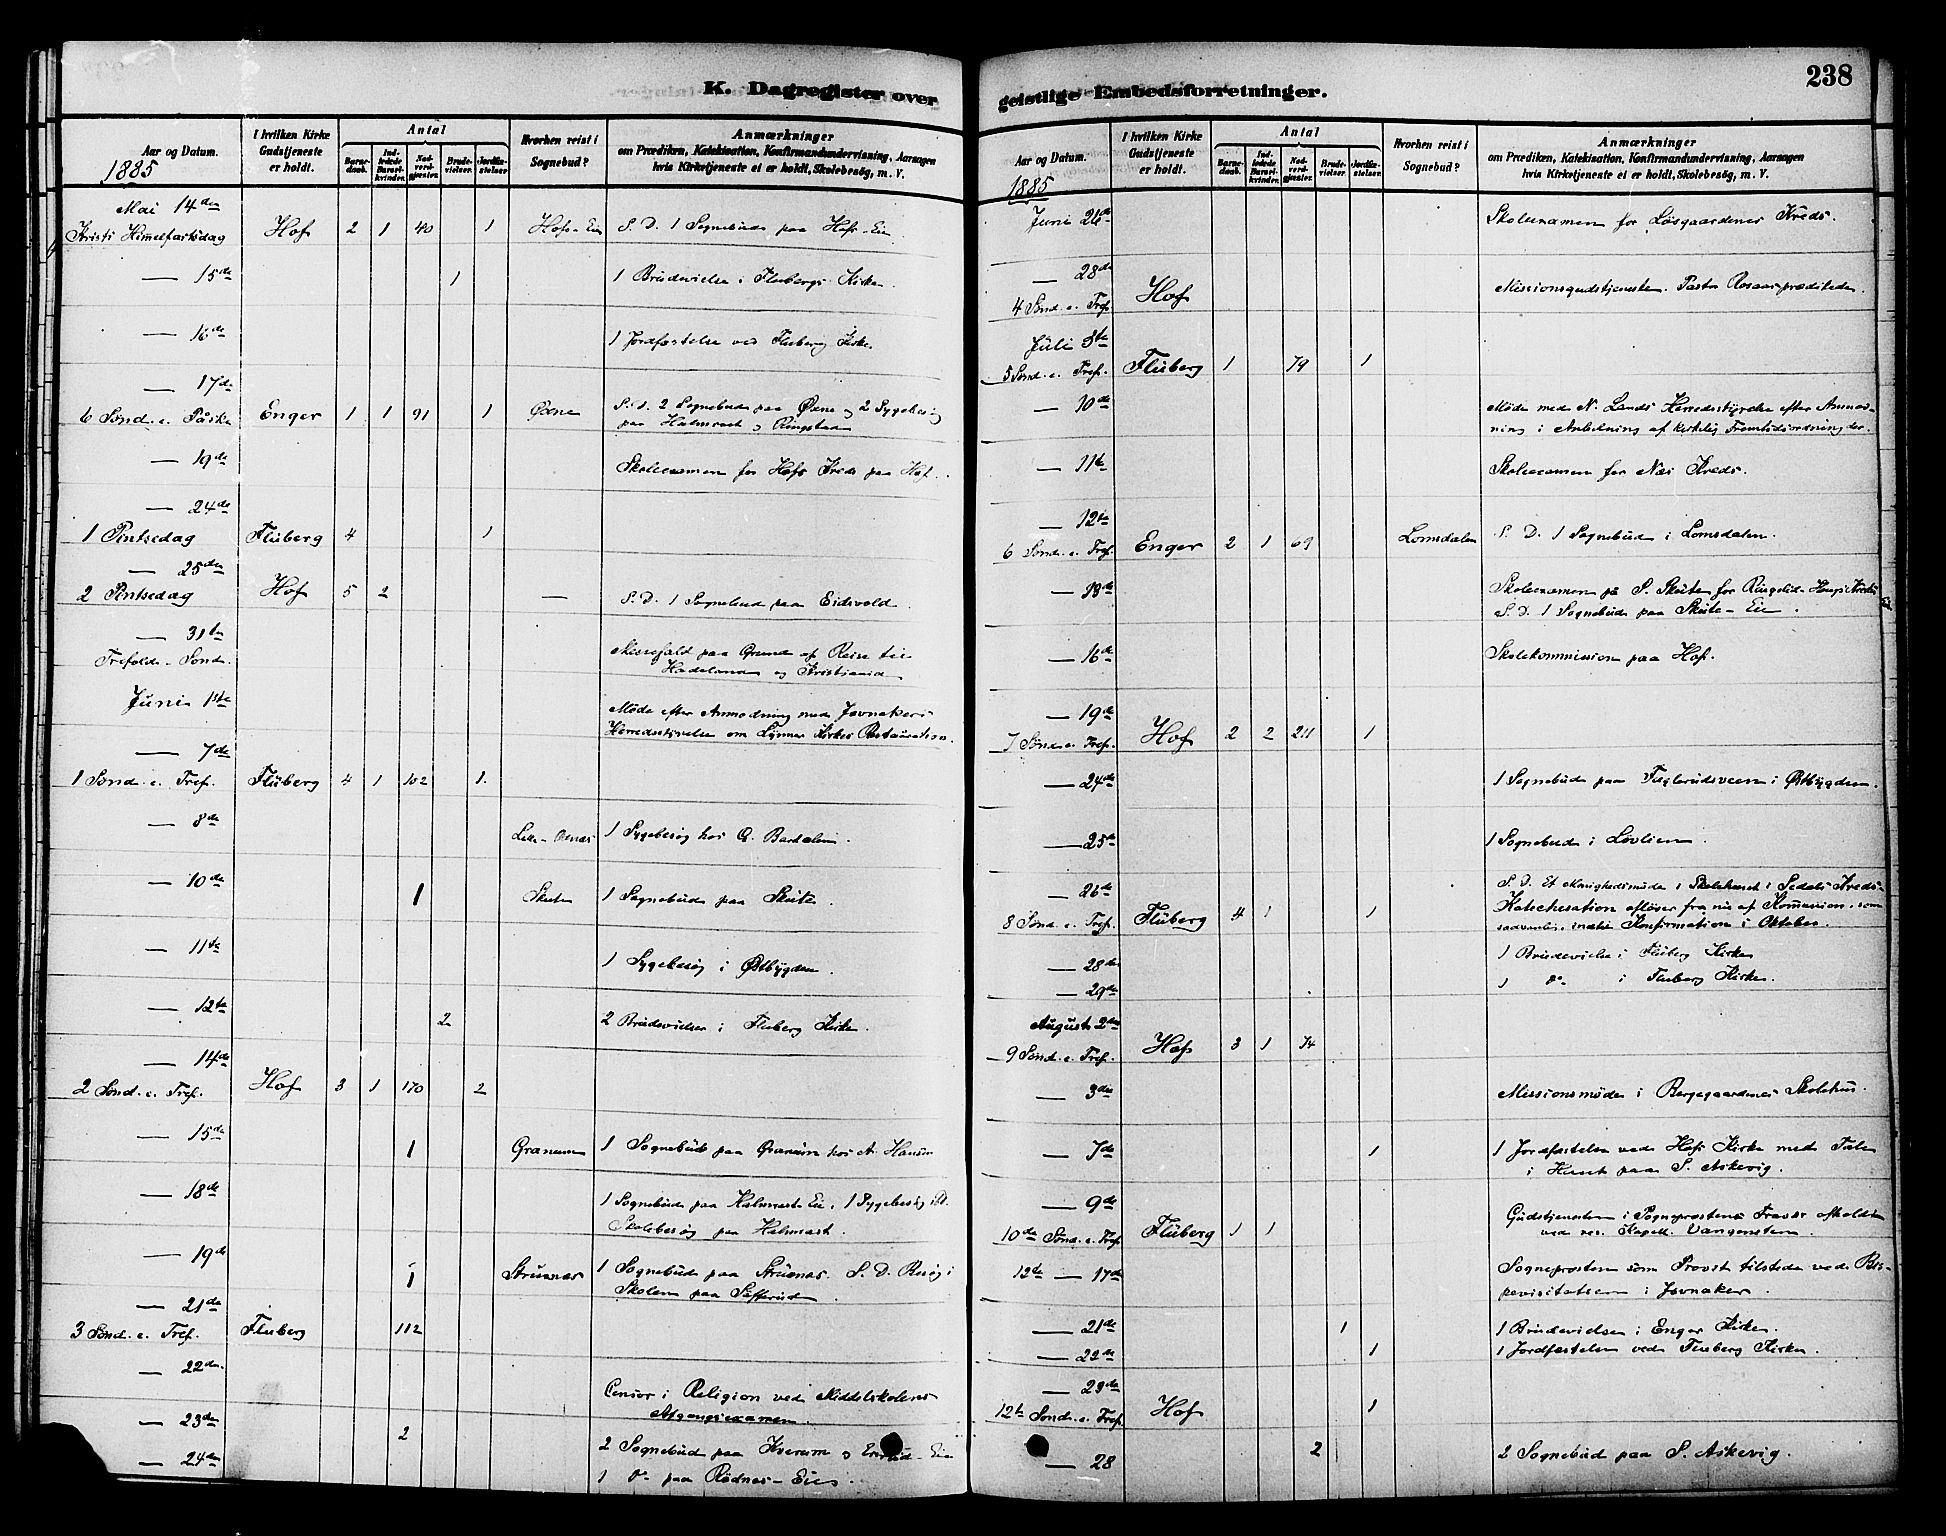 238
K. Dagregister over
Aar og Datum.
1885
I hvilken Kirke Gudstjeneste er holdt.
Antal
Barnedaab.
Indledede Barselkvinder.
Nadverdgjester.
Brudevielser.
Jordfæstelser.
Hvorhen reist i Sognebud?
Anmærkninger
om Prædiken, Katekisation, Konfirmandundervisning, Aarsagen
hvis Kirketjeneste ei er holdt, Skolebesøg, m. V.
Mai 14de
Kristi Himmelfartsdag Hof 2 1 40 1 Hofs-Eie S. D. 1 Sognebud paa Hofs-Eie.
— 15de 1 1 Brudevielse i Flubergs Kirke.
— 16de 1 Jordfæstelse ved Fluberg Kirke.
— 17de
6 Sønd. e. Påske Enger 1 1 91 1 Øxne S. D. 2 Sognebud paa Øxne og 2 Sygebesøg
paa Halmrast og Ringstad
— 19de Skoleexamen for Hofs Kreds paa Hof.
— 24de
1 Pintsedag Fluberg 4 1
— 25de
2 Pintsedag Hof 5 2 — S. D. 1 Sognebud paa Eidsvold.
— 31te
Trefolds-Sønd. Messefald paa Grund af Reise til
Hadeland og Kristiania
Juni 1ste Møde efter Anmodning med Jevnakers
Herredsstyrelse om Lunner Kirkes Restauration.
— 7de
1 Sønd. e. Tref. Fluberg 4 1 102 1.
— 8de Lille-Odnæs 1 Sygebesøg hos G.
— 10de 1 Skute 1 Sognebud paa Skute.
— 11te 1 Sygebesøg i Østbygden.
— 12te 2 2 Brudevielser i Fluberg Kirke.
— 14de
2 Sønd. e. Tref. Hof 3 1 170 2
— 15de 1 Granum 1 Sognebud paa Granum hos A. Hansen
— 18de 1 Sognebud paa Halmrast Eie, 1 Sygebesøg
Skolebesøg paa Halmrast.
— 19de 1 Struenæs 1 Sognebud paa Struenæs. S. D. Besøg i
Skolen paa Sæfferud.
— 21de
3 Sønd. e. Tref. Fluberg 112
— 22de. Censor i Religion ved Middelskolens
Afgangsexamen.
— 23de 2 2 Sognebud paa Kverum og Eie
— 24de 1 do paa Rødnes-Eie.
geistlige Embedsforretninger.
Aar og Datum.
1885
I hvilken Kirke Gudstjeneste er holdt.
Antal
Barnedaab.
Indledede Barselkvinder.
Nadverdgjester.
Brudevielser.
Jordfæstelser.
Hvorhen reist i Sognebud?
Anmærkninger
om Prædiken, Katekisation, Konfirmandundervisning, Aarsagen
hvis Kirketjeneste ei er holdt, Skolebesøg, m. V.
Juni 26de Skoleexamen for Løsgaardenes Kreds.
— 28de
4 Sønd. e. Tref. Hof Missionsgudstjeneste. Pastor Rosaas prædikede.
Juli
5 Sønd. e. Tref. Fluberg 1 79 1
— 10de Møde med N. Lands Herredsstyrelse efter Anmod-
ning i Anledning af kirkelig Fremtidsordning der.
— 11te Skoleexamen for Næs Kreds.
— 12te
6 Sønd. e. Tref. Enger 2 1 69 Lomsdalen S. D. 1 Sognebud i Lomsdalen.
Skoleexamen på S. Skute for Kreds
S. D. 1 Sognebud paa Skute-Eie.
— 16de Skolekommission paa Hof.
— 19de
7 Sønd. e. Tref. Hof 2 2 211 1
— 24de 1 Sognebud paa Fuglerudsveen i Østbygden.
— 25de 1 Sognebud i Løvlien.
— 26de S. D. Et Menighedsmøde i Skolehuset i Sedals Kreds.
8 Sønd. e. Tref. Fluberg 4 1 1 Katechesation afløser fra nu af Konfession, som
sædvanlig, indtil Konfirmation i Oktober.
— 28de 1 Brudevielse i Fluberg Kirke
— 29de 1 do i Fluberg Kirke.
August 2den
9 Sønd. e. Tref. Hof 3 1 74
— 3die Missionsmøde i Bergegaardenes Skolehus.
— 7de 1 1 Jordfæstelse ved Hofs Kirke med Tale
i Huset paa S. Askevig.
— 9de Gudstjenesten i Sogneprestens Fravær afholdt
10de Sønd. e. Tref. Fluberg 1 1 ved res. Kapell. Vangensten.
12te — 17de Sognepresten som Provst tilstede ved Bis-
pevisitatsen i Jevnaker.
— 21de 1 1 Brudevielse i Enger Kirke.
— 22de 1 1 Jordfæstelse ved Fluberg Kirke.
— 23de
12te Sønd. e. Tref. Hof 1
— 28 2 2 Sognebud paa S. Askevig.